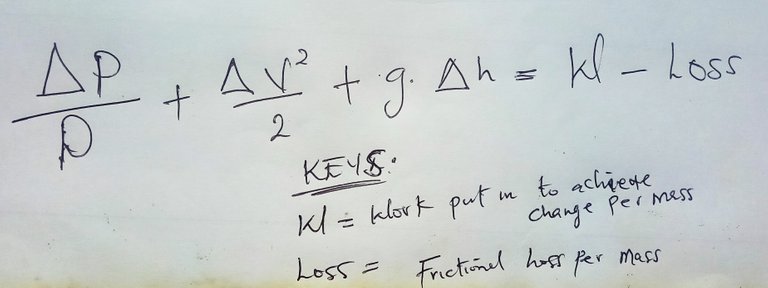 ΔP/ρ + ΔV²/2 + g. Δh = W - Loss
KEYS:
W = Work put in to achieve
change per mass
Loss = Frictional Loss per mass